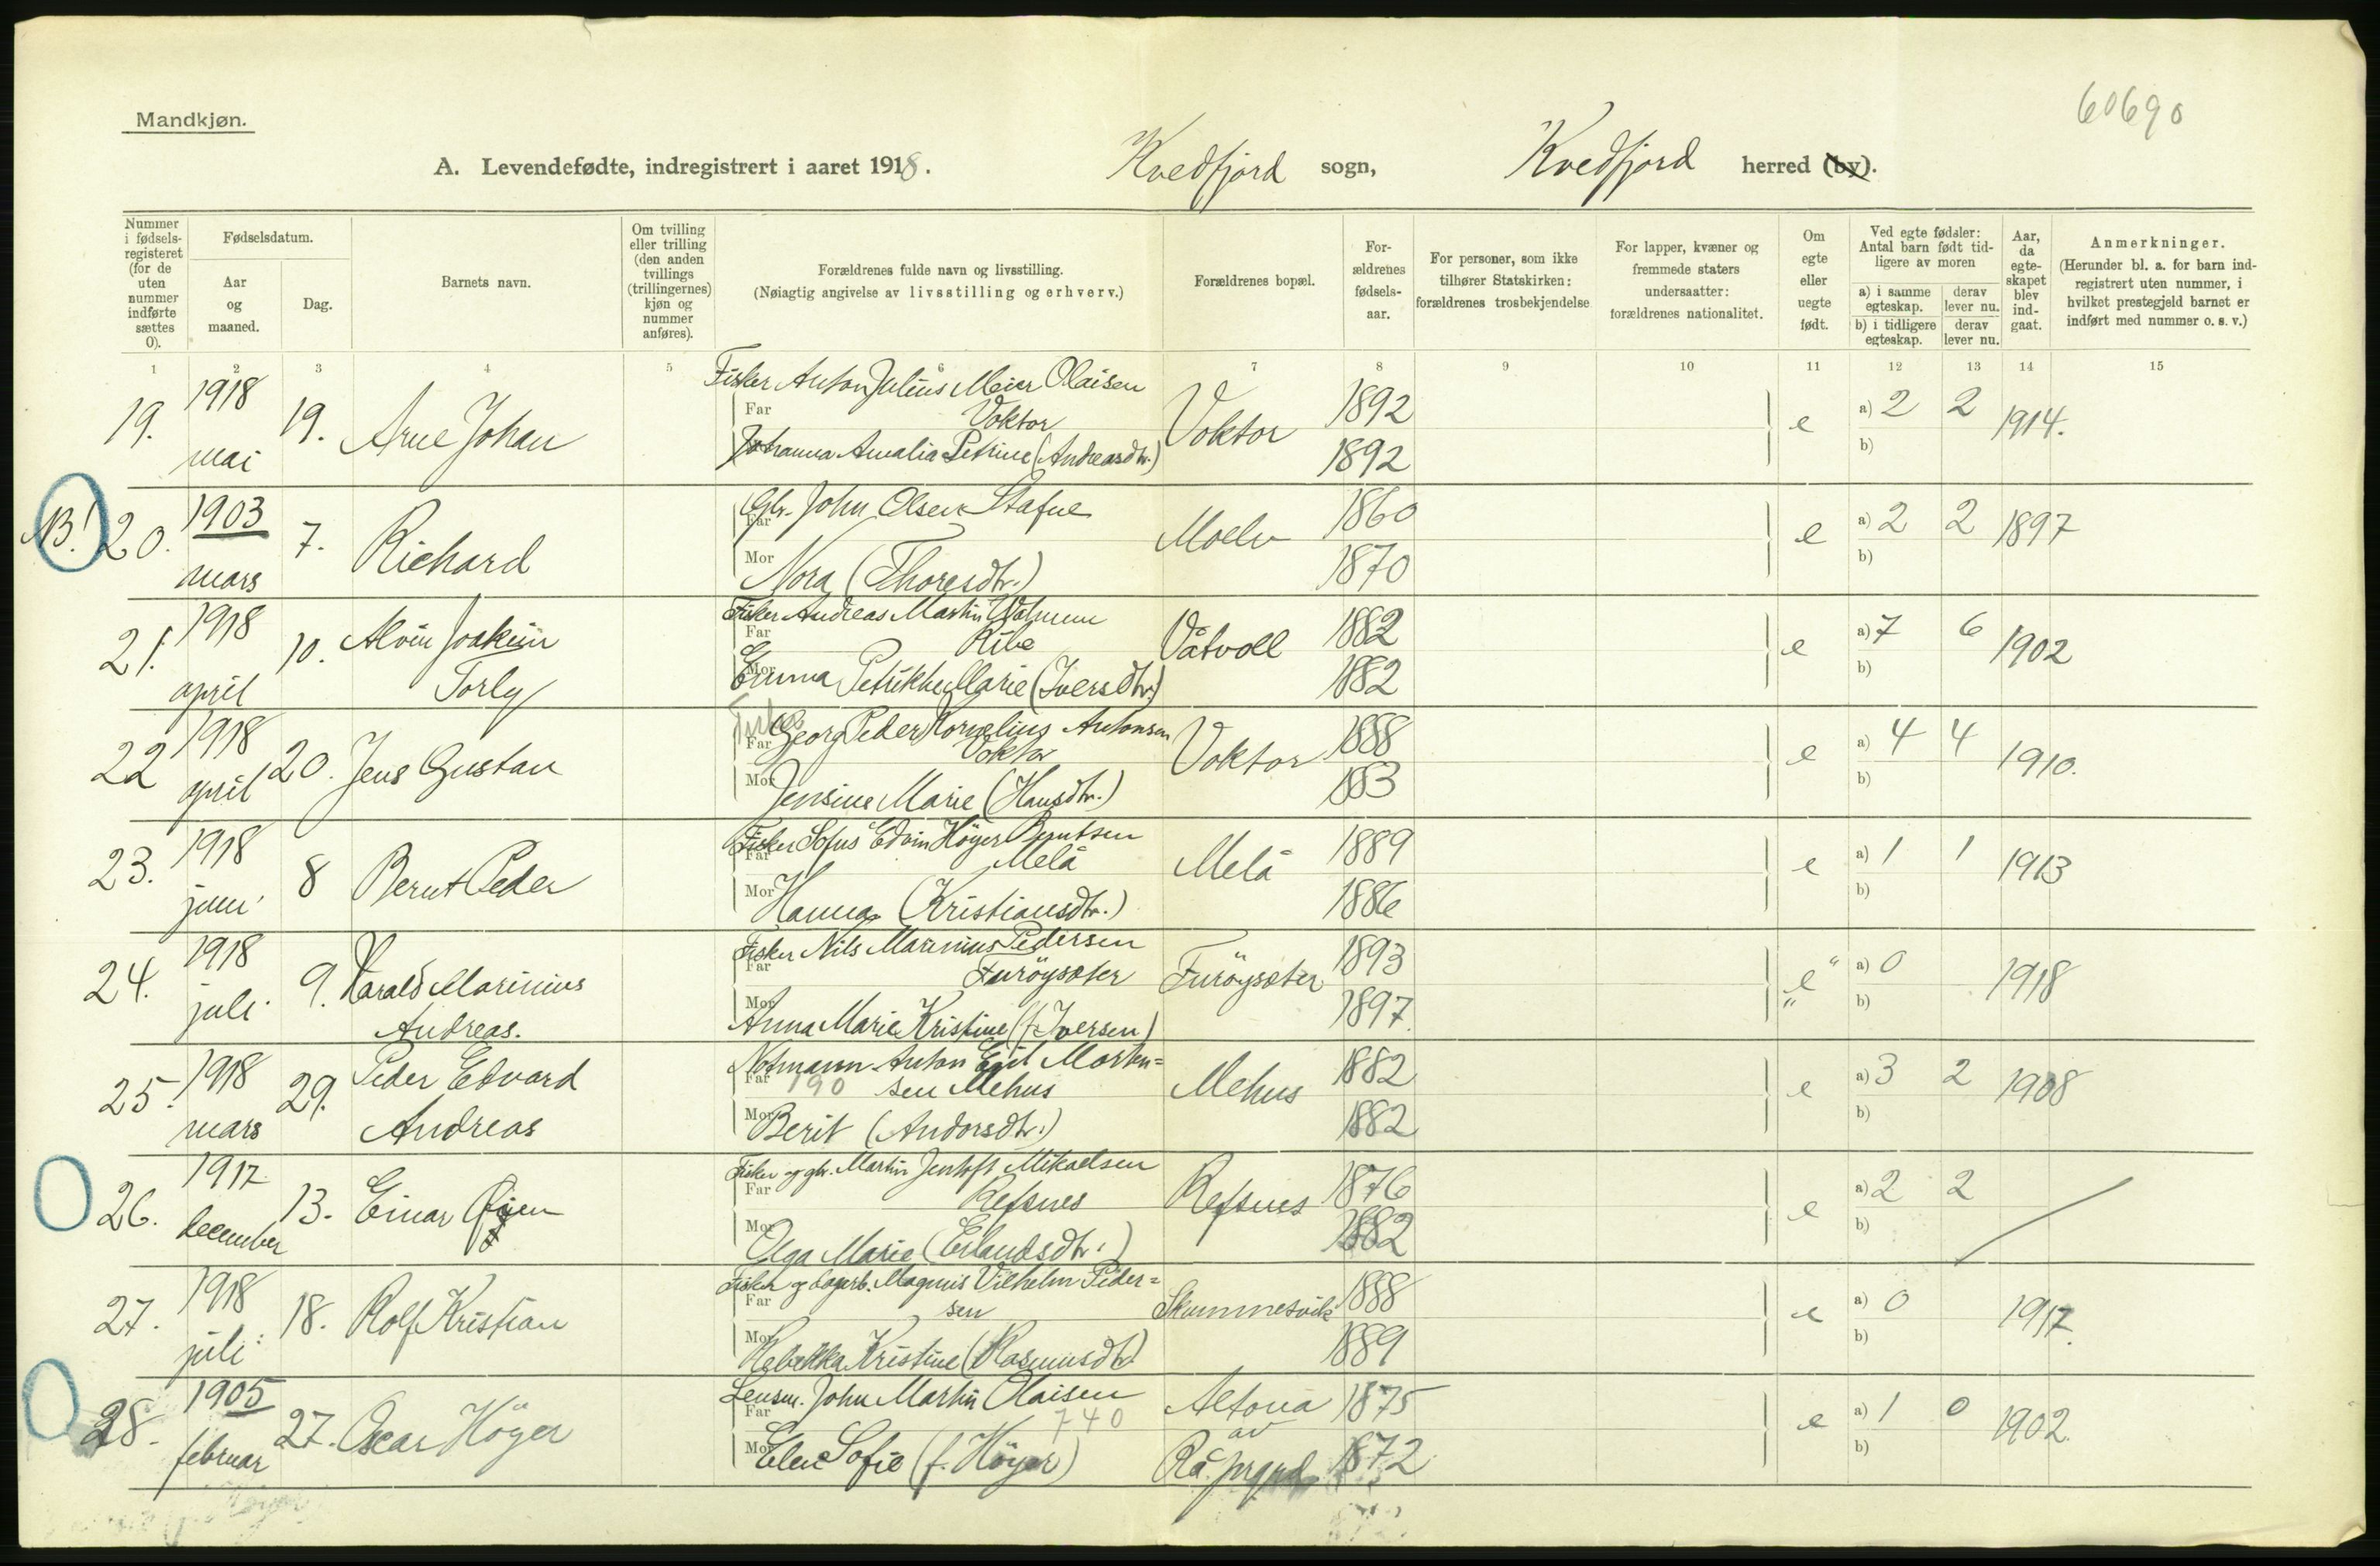 60690
Mandkjøn.
A. Levendefødte, indregistrert i aaret 1918. Kvedfjord sogn, Kvedfjord herred (by).
Nummer i fødsels-registeret (for de uten nummer indførte sættes 0).
Fødselsdatum.
Aar og maaned.
Dag.
Barnets navn.
Om tvilling eller trilling (den anden tvillings (trillingernes) kjøn og nummer anføres).
Forældrenes fulde navn og livsstilling.
(Nøiagtig angivelse av livsstilling og erhverv.)
Forældrenes bopæl.
For-ældrenes fødsels-aar.
For personer, som ikke tilhører Statskirken: forældrenes trosbekjendelse
For lapper, kvæner og fremmede staters undersaatter: forældrenes nationalitet.
Om egte eller uegte født.
Ved egte fødsler: Antal barn født tid-ligere av moren
a) i samme egteskap. derav lever nu.
b) i tidligere egteskap. derav lever nu.
Aar, da egte-skapet blev ind-gaat.
Anmerkninger.
(Herunder bl. a. for barn ind-registrert uten nummer, i hvilket prestegjeld barnet er indført med nummer o. s. v.)
1 2 3 4 5 6 7 8 9 10 11 12 13 14 15
19. 1918 mai 19. Arne Johan
Fisker Anton Julius Meier Olaisen
Far Voktor
Johanna Amalia Petrine (Andreasdtr.)
Voktor 1892 1892 e a) 2 2 b) 1914.
NB! 20. 1903 mars 7. Richard
Far Gbr. John Olsen Stafne
Mor Nora (Thoresdtr.)
Moelv 1860 1870 e a) 2 2 b) 1897
21. 1918 april 10. Alvin Joakim Torly
Fisker Andreas Martin
Far Ribe
Mor Emma Petrikke Marie (Iversdtr.)
Våtvoll 1882 1882 e a) 7 6 b) 1902
22 1918 april 20. Jens Gustav
Fisker Georg Peder Kornelius Antonsen
Far Voktor
Mor Jensine Marie (Hansdtr.)
Voktor 1888 1883 e a) 4 4 b) 1910.
23. 1918 juni 8 Bernt Peder
Fisker Sofus Edvin Höyer Berntsen
Far Melå
Mor Hanna (Kristiansdtr.)
Melå 1889 1886 e a) 1 1 b) 1913
24. 1918 juli 9. Harald Marinius Andreas.
Fisker Nils Marinius Pedersen
Far Furöysæter
Mor Anna Marie Kristine (f. Iversen)
Furöysæter 1893 1897. „e“ a) 0 b) 1918
25. 1918 mars 29. Peder Edvard Andreas
Notmann Anton Emil Morten=
Far 190 sen Mehus
Mor Berit (Andorsdtr.)
Mehus 1882 1882 e a) 3 2 b) 1908
26. 1917 december 13. Einar
Fisker og gbr. Martin Jentoft Mikaelsen
Far Refsnes
Mor Olga Marie (Erlandsdtr.)
Refsnes 1876 1882 e a) 2 2 b)
27. 1918 juli 18. Rolf Kristian
Fisker og Magnus Vilhelm Peder=
Far sen
Mor Rebekka Kristine (Rasmusdtr.)
Skummesvik 1888 1889 e a) 0 b) 1917.
28. 1905 februar 27. Oscar Höyer
Lensm. John Martin Olaisen
Far 740
Mor Elen Sofie (f. Höyer)
Altona av Rå 1875 1872 e a) 1 0 b) 1902.